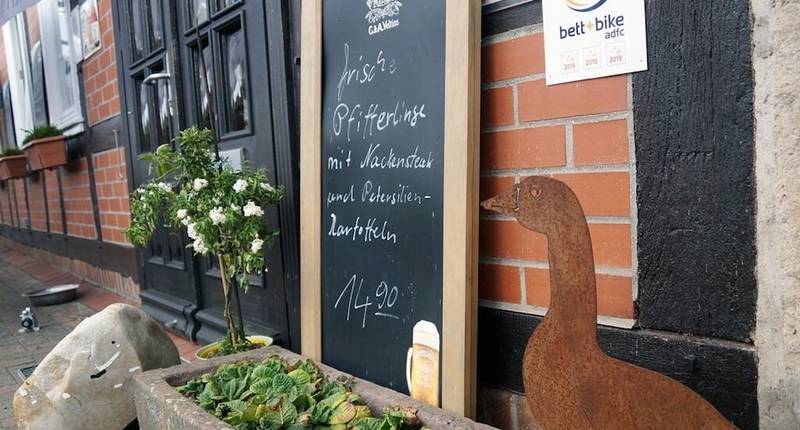 G.&A. Weltins
frische
Pfifferlinge
mit Nackensteak
und Petersilien-
Kartoffeln
14 90
bett+bike
adfc
2014 2015 2016